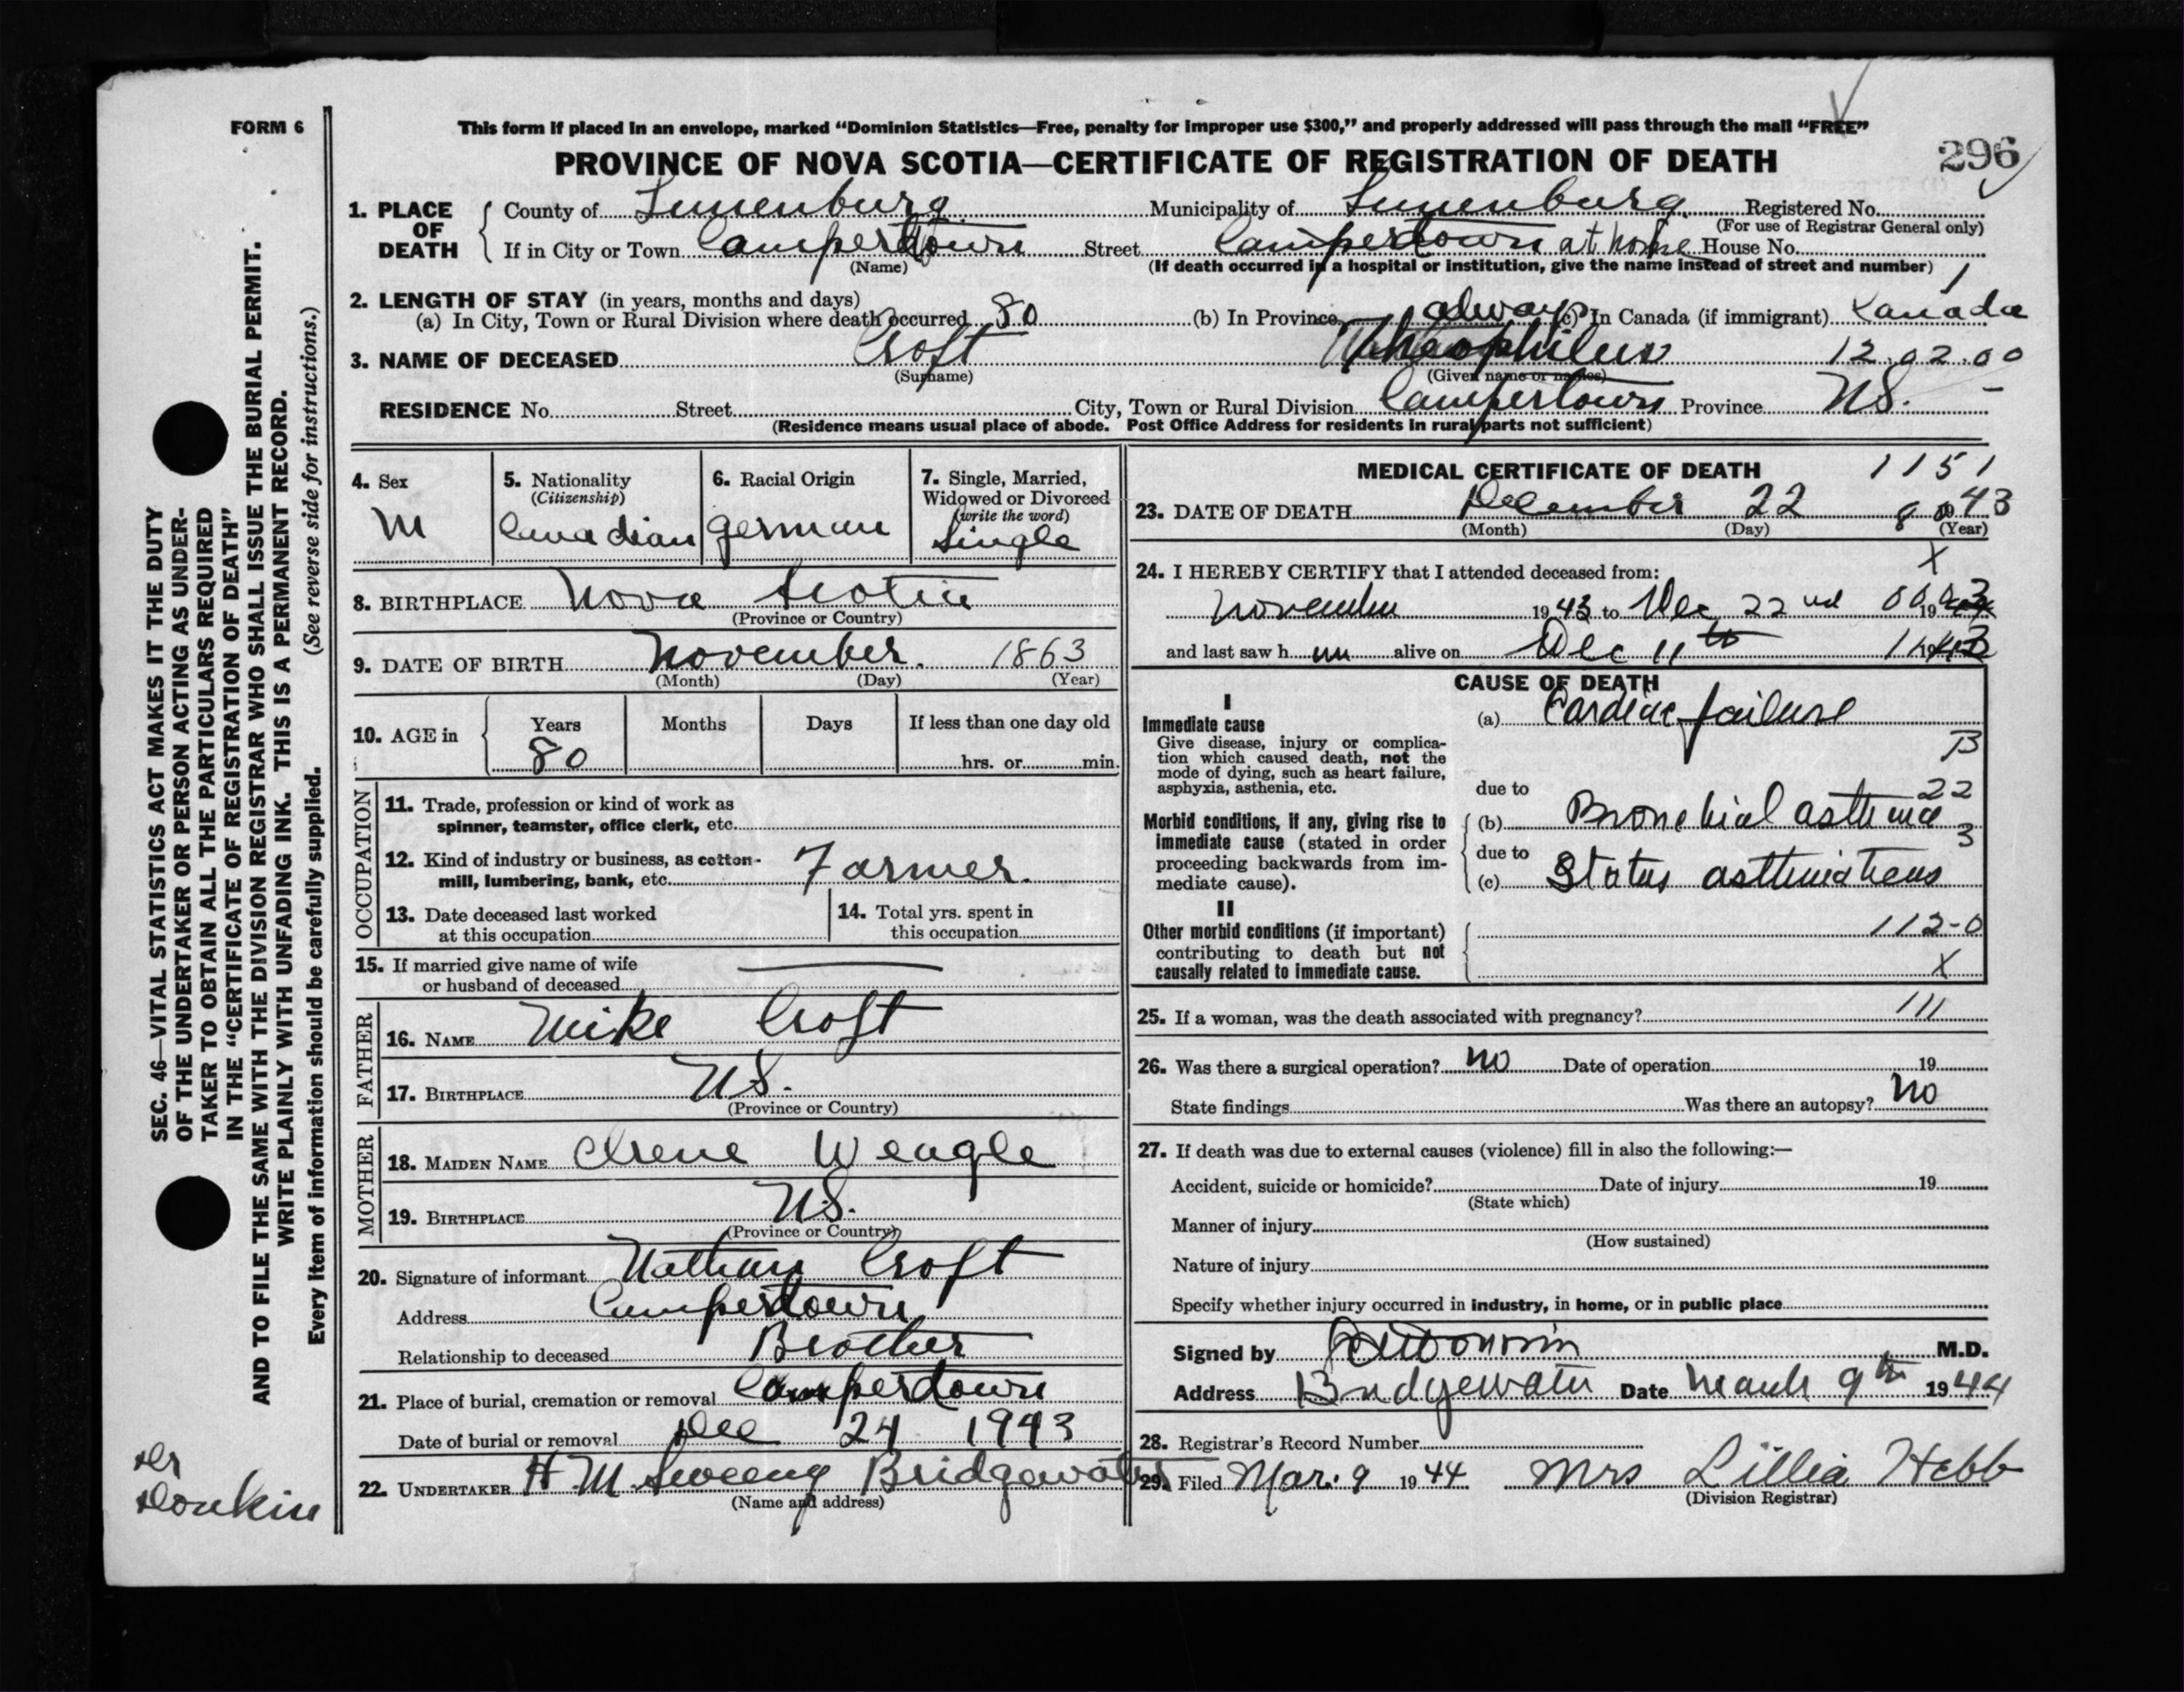 FORM 6
This form if placed in an envelope, marked “Dominion Statistics—Free, penalty for improper use $300,” and properly addressed will pass through the mail “FREE”
PROVINCE OF NOVA SCOTIA—CERTIFICATE OF REGISTRATION OF DEATH
296
1. PLACE OF DEATH
County of Lunenburg Municipality of Lunenburg Registered No.
(For use of Registrar General only)
If in City or Town Camperdown Street Camperdown at home House No.
(Name) (If death occurred in a hospital or institution, give the name instead of street and number) 1
2. LENGTH OF STAY (in years, months and days)
(a) In City, Town or Rural Division where death occurred 80 (b) In Province always (c) In Canada (if immigrant) Canada
3. NAME OF DECEASED Croft Theophilus 12.02.00
(Surname) (Given name or names)
RESIDENCE No. Street City, Town or Rural Division Campertown Province NS. -
(Residence means usual place of abode. Post Office Address for residents in rural parts not sufficient)
4. Sex
M
5. Nationality
(Citizenship)
Canadian
6. Racial Origin
german
7. Single, Married,
Widowed or Divorced
(write the word)
Single
8. BIRTHPLACE Nova Scotia
(Province or Country)
9. DATE OF BIRTH November. 1863
(Month) (Day) (Year)
10. AGE in Years Months Days If less than one day old
80 hrs. or min.
OCCUPATION
11. Trade, profession or kind of work as
spinner, teamster, office clerk, etc.
12. Kind of industry or business, as cotton-
mill, lumbering, bank, etc. Farmer.
13. Date deceased last worked
at this occupation
14. Total yrs. spent in
this occupation
15. If married give name of wife
or husband of deceased
FATHER
16. NAME Mike Croft
17. BIRTHPLACE NS.
(Province or Country)
MOTHER
18. MAIDEN NAME Irene Weagle
19. BIRTHPLACE NS.
(Province or Country)
20. Signature of informant Nathan Croft
Address Camperdown
Relationship to deceased Brother
21. Place of burial, cremation or removal Camperdown
Date of burial or removal Dec 24 1943
22. UNDERTAKER H.M. Sweeny Bridgewater
(Name and address)
MEDICAL CERTIFICATE OF DEATH 1151
23. DATE OF DEATH December 22 80 43
(Month) (Day) (Year)
X
24. I HEREBY CERTIFY that I attended deceased from:
November 1943 to Dec 22nd 00 1943
and last saw h im alive on Dec 11th 1943
CAUSE OF DEATH
I
Immediate cause
Give disease, injury or complica-
tion which caused death, not the
mode of dying, such as heart failure,
asphyxia, asthenia, etc.
(a) Cardiac failure
B
due to
22
Morbid conditions, if any, giving rise to
immediate cause (stated in order
proceeding backwards from im-
mediate cause).
(b) Bronchial asthma
3
due to
(c) Status asthmaticus
II
Other morbid conditions (if important)
contributing to death but not
causally related to immediate cause.
112-0
X
25. If a woman, was the death associated with pregnancy? 111
26. Was there a surgical operation? no Date of operation 19
State findings Was there an autopsy? no
27. If death was due to external causes (violence) fill in also the following:—
Accident, suicide or homicide? Date of injury 19
(State which)
Manner of injury
(How sustained)
Nature of injury
Specify whether injury occurred in industry, in home, or in public place
Signed by M.D.
Address Bridgewater Date March 9th 1944
28. Registrar's Record Number
29. Filed Mar. 9 1944 Mrs Lillia Hebb
(Division Registrar)
SEC. 46—VITAL STATISTICS ACT MAKES IT THE DUTY
OF THE UNDERTAKER OR PERSON ACTING AS UNDER-
TAKER TO OBTAIN ALL THE PARTICULARS REQUIRED
IN THE “CERTIFICATE OF REGISTRATION OF DEATH”
AND TO FILE THE SAME WITH THE DIVISION REGISTRAR WHO SHALL ISSUE THE BURIAL PERMIT.
WRITE PLAINLY WITH UNFADING INK. THIS IS A PERMANENT RECORD.
(See reverse side for instructions.)
Every item of information should be carefully supplied.
Dr
Donkin